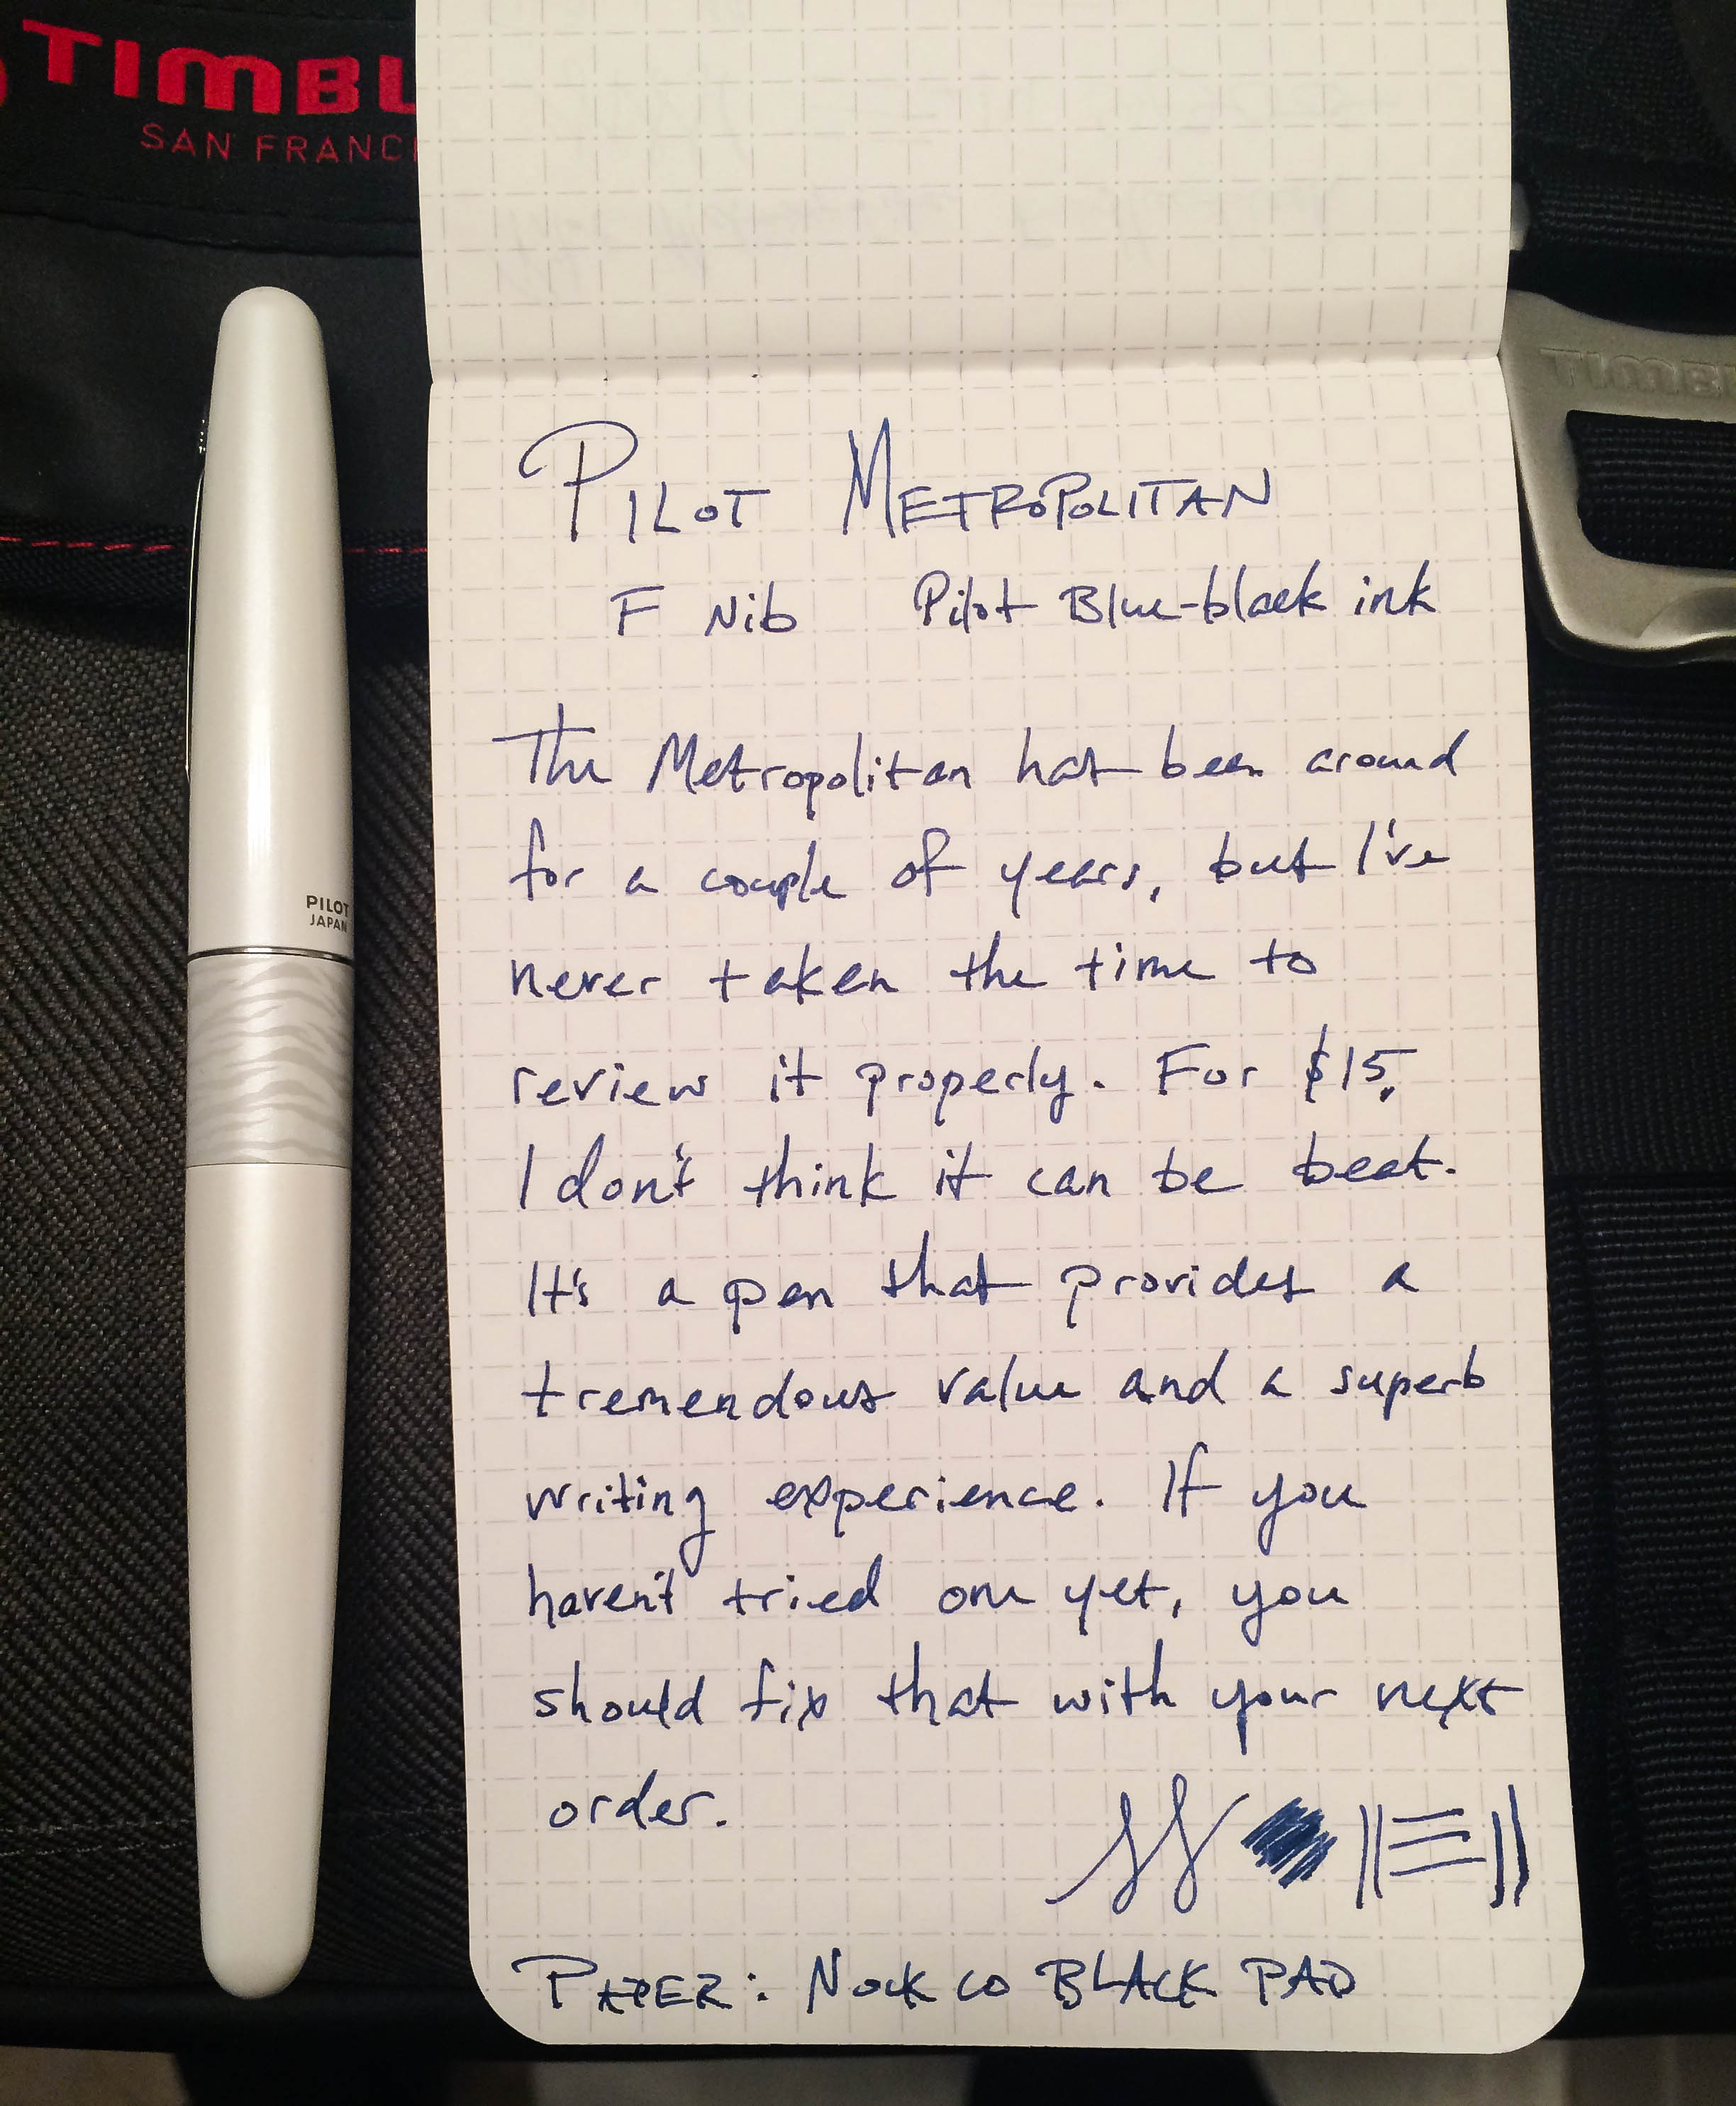 TIMBU
SAN FRANCI
TIMBU
PILOT
JAPAN
PILOT METROPOLITAN
F Nib Pilot Blue-black ink
The Metropolitan has been around
for a couple of years, but I've
never taken the time to
review it properly. For $15,
I don't think it can be beat.
It's a pen that provides a
tremendous value and a superb
writing experience. If you
haven't tried one yet, you
should fix that with your next
order.
PAPER: NOCK CO BLACK PAD